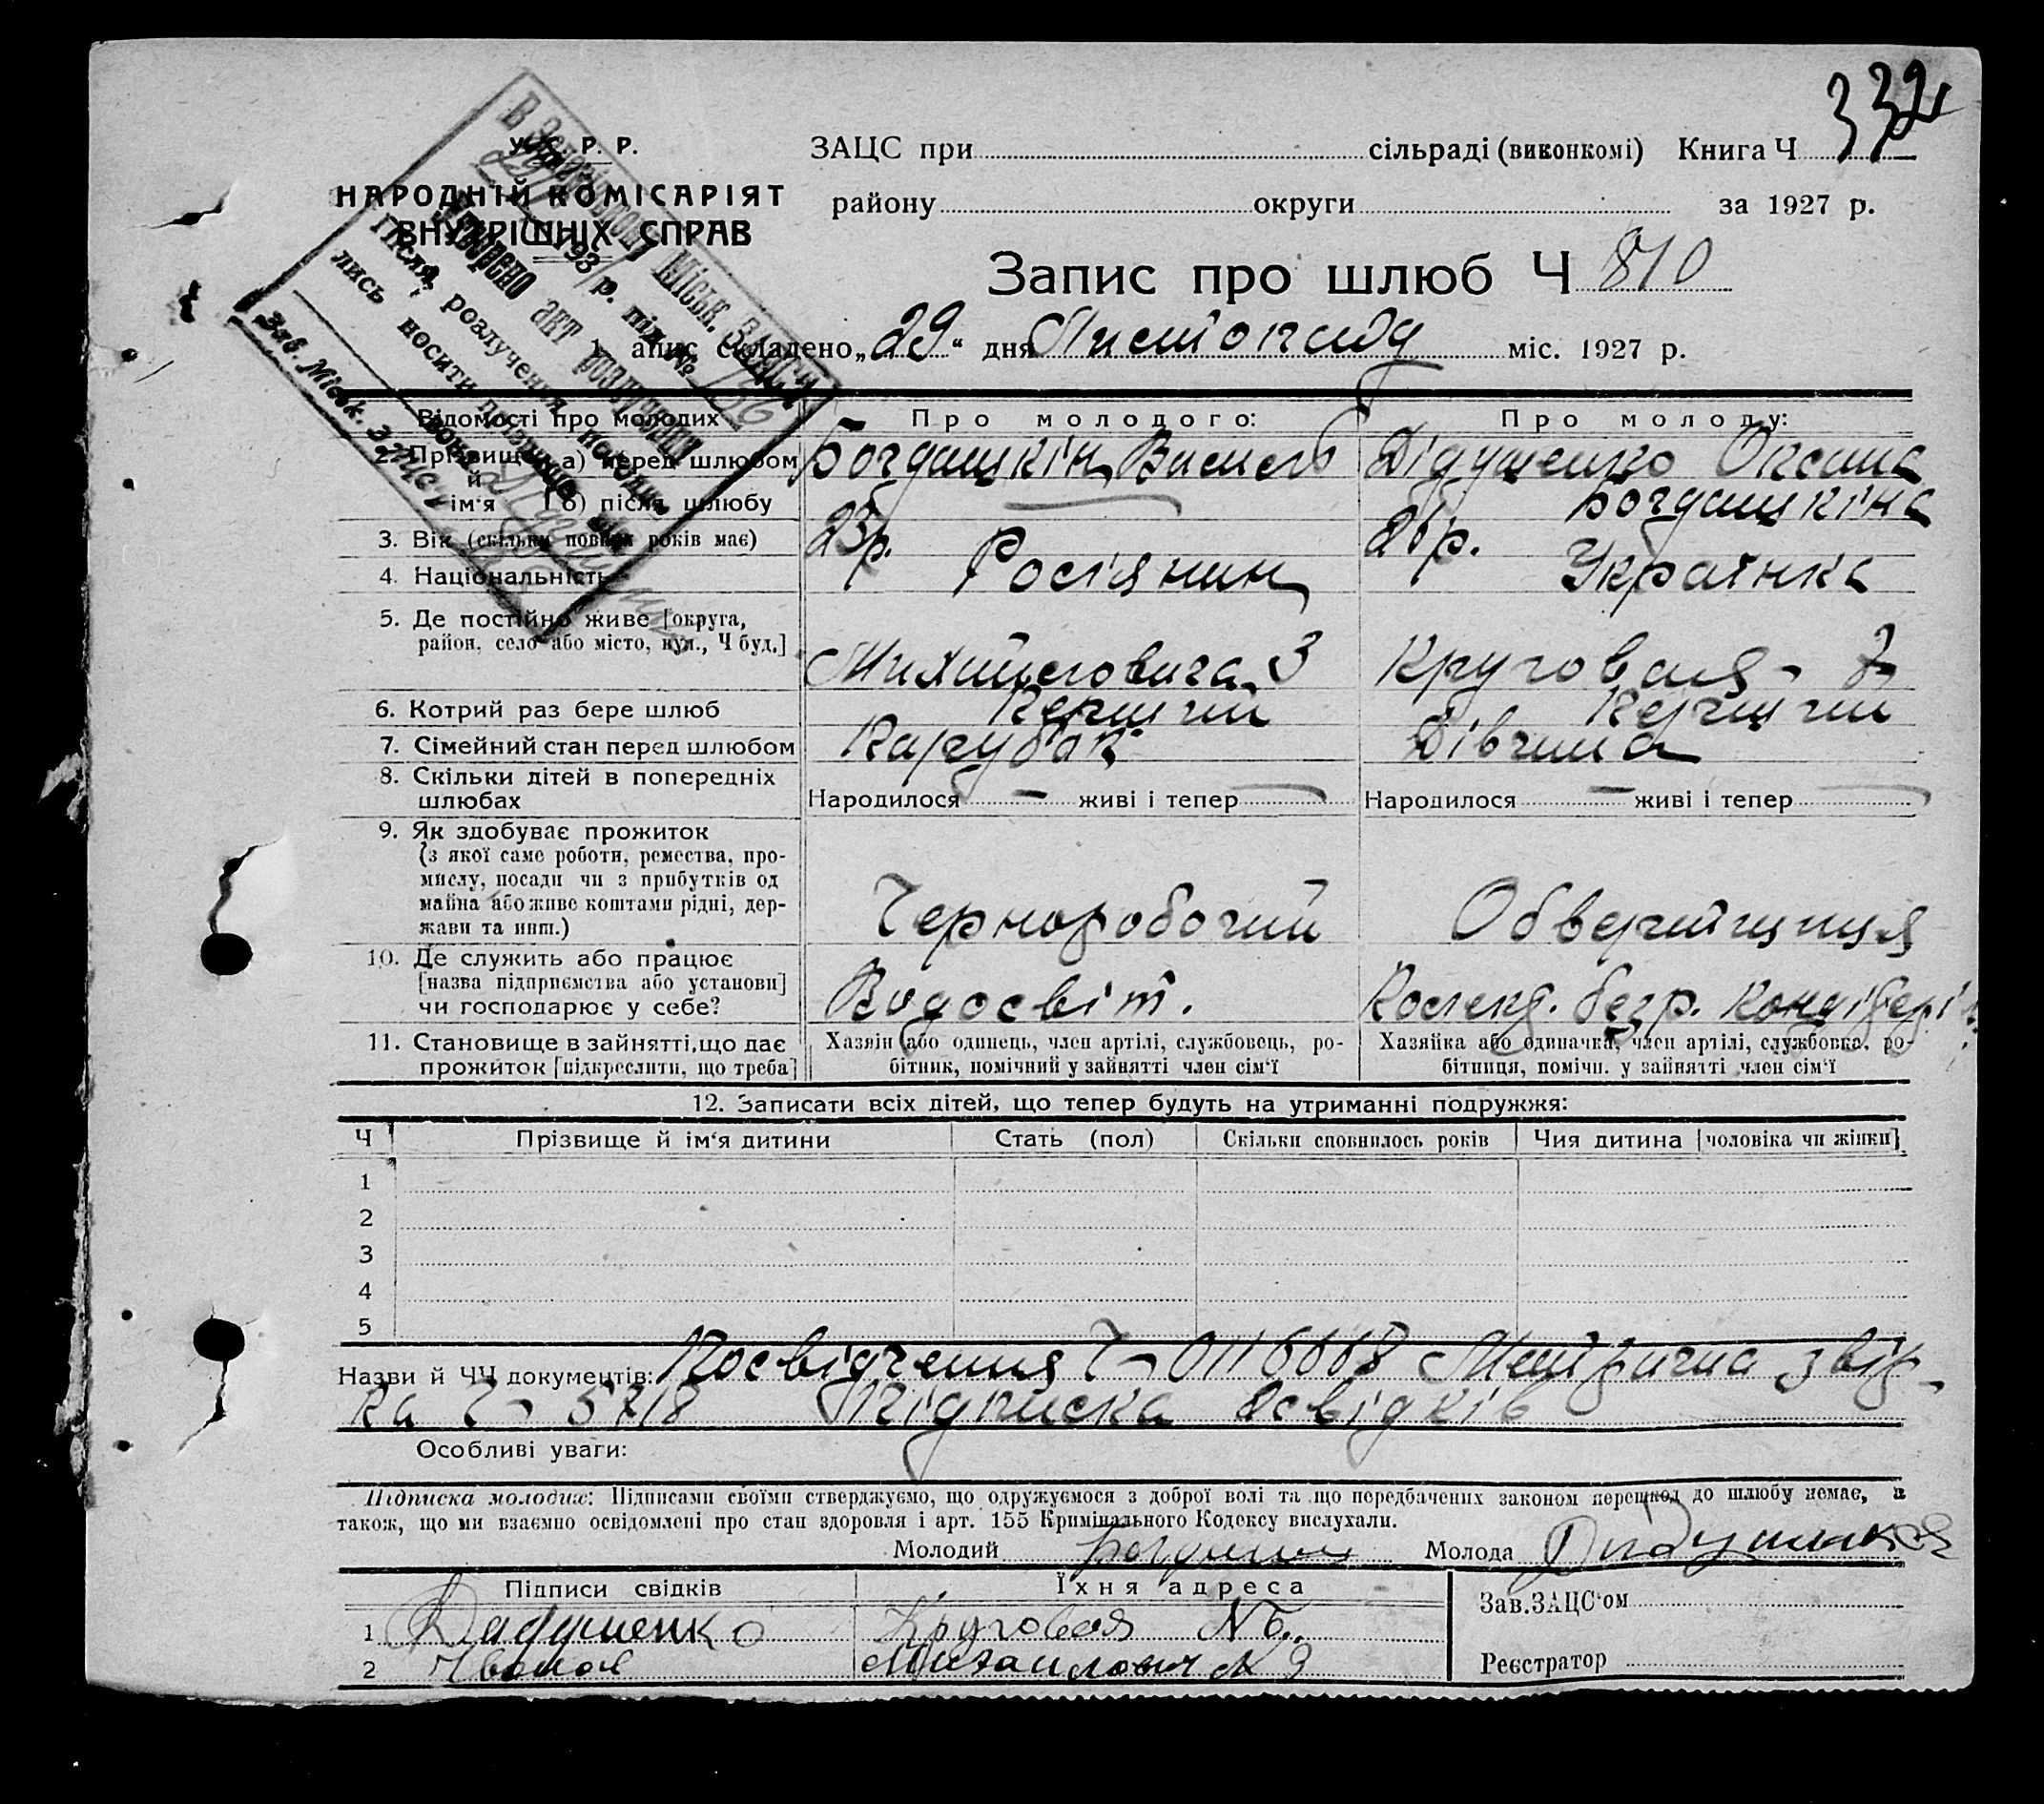 332
У.С.Р.Р.
НАРОДНІЙ КОМІСАРІЯТ
ВНУТРІШНІХ СПРАВ
ЗАЦС при сільраді (виконкомі) Книга Ч
району округи за 1927 р.
Запис про шлюб Ч 810
1. апис складено „29“ дня Листопаду міс. 1927 р.
Міськ. ЗАЦС'і
193 р. під №
створено акт розлучення
Після розлучення
лись носити прізвище
Зав. Міськ. ЗАЦС
Відомості про молодих Про молодого: Про молоду:
2. Прізвище й ім'я а) перед шлюбом Богдашкін Василь Дідушенко Оксана
б) після шлюбу Богдашкіна
3. Вік (скільки повних років має) 25 р. 26 р.
4. Національність Росіянин Українка
5. Де постійно живе [округа,
район, село або місто, вул., Ч буд.] Круговая
6. Котрий раз бере шлюб Перший Перший
7. Сімейний стан перед шлюбом Парубок Дівчина
8. Скільки дітей в попередніх
шлюбах Народилося — живі і тепер — Народилося — живі і тепер —
9. Як здобуває прожиток
(з якої саме роботи, ремества, про-
мислу, посади чи з прибутків од
майна або живе коштами рідні, дер-
жави та инш.) Черноробочий Обверитщиця
10. Де служить або працює
[назва підприємства або установи]
чи господарює у себе? Водосвіт.
11. Становище в зайнятті, що дає
прожиток [підкреслити, що треба]
Хазяїн або одинець, член артілі, службовець, ро-
бітник, помічний у зайнятті член сім'ї
Хазяйка або одиначка, член артілі, службовка, ро-
бітниця, помічн. у зайнятті член сім'ї
12. Записати всіх дітей, що тепер будуть на утриманні подружжя:
Ч Прізвище й ім'я дитини Стать (пол) Скільки сповнилось років Чия дитина [чоловіка чи жінки]
1
2
3
4
5
Назви й ЧЧ документів: Посвідчення Ч Метрична звір-
ка Ч 5718 Підписка свідків
Особливі уваги:
Підписка молодих: Підписами своїми стверджуємо, що одружуємося з доброї волі та що передбачених законом перешкод до шлюбу немає, а
також, що ми взаємно освідомлені про стан здоровля і арт. 155 Кримінального Кодексу вислухали.
Молодий Молода
Підписи свідків Їхня адреса
1 Круговая
2
Зав. ЗАЦС'ом
Реєстратор